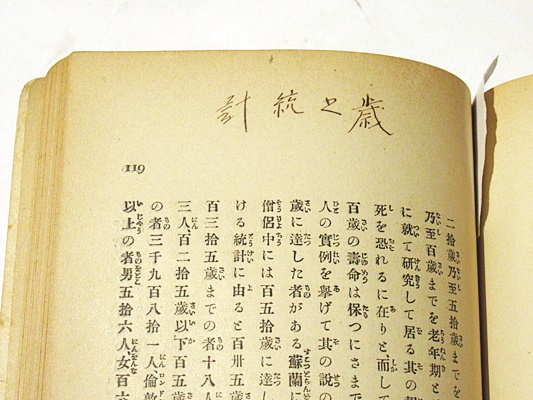 歳之統計
119
二拾歳乃至五拾歳までを
乃至百歳までを老年期と
に就て研究して居る其の
死を恐れるに在りと、而して
百歳の壽命は保つにさまで
人の實例を擧げて其の說の
歳に達した者がある、蘇蘭に
僧侶中には百五拾歳に達し
ける統計に由ると百卅五歳
百三拾五歳までの者十八人
三人、百二拾五歳以下百五歳
の者三千九百八拾一人、倫敦
以上の者男五拾六人、女百六